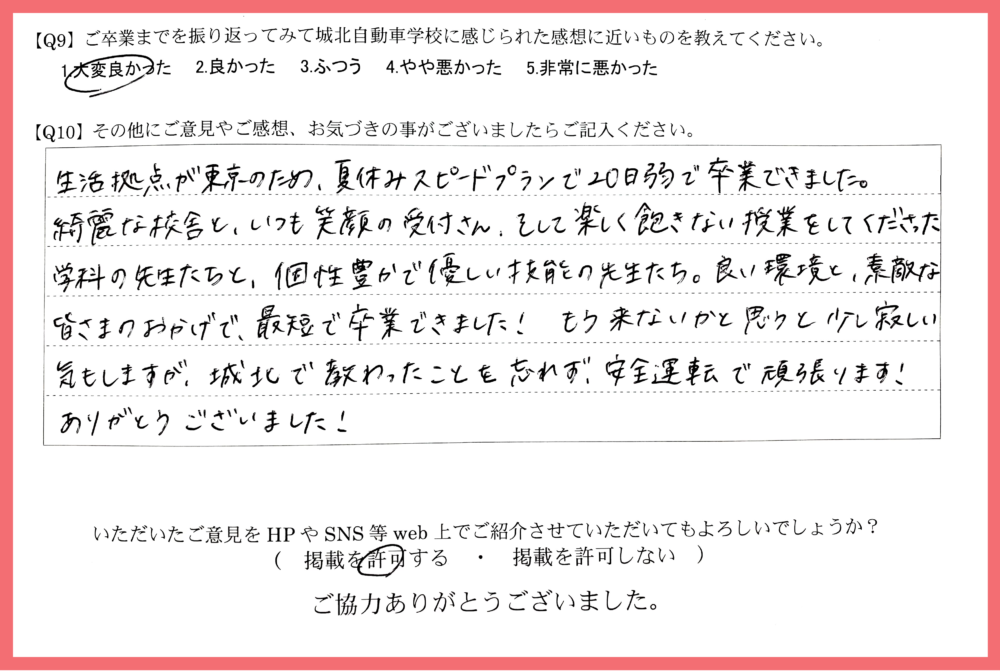 【Q9】ご卒業までを振り返ってみて城北自動車学校に感じられた感想に近いものを教えてください。
1.大変良かった 2.良かった 3.ふつう 4.やや悪かった 5.非常に悪かった
【Q10】その他にご意見やご感想、お気づきの事がございましたらご記入ください。
生活拠点が東京のため、夏休みスピードプランで20日弱で卒業できました。
綺麗な校舎と、いつも笑顔の受付さん、そして楽しく飽きない授業をしてくださった
学科の先生たちと、個性豊かで優しい技能の先生たち。良い環境と、素敵な
皆さまのおかげで、最短で卒業できました! もう来ないかと思うと少し寂しい
気もしますが、城北で教わったことを忘れず、安全運転で頑張ります!
ありがとうございました!
いただいたご意見をHPやSNS等web上でご紹介させていただいてもよろしいでしょうか?
( 掲載を許可する ・ 掲載を許可しない )
ご協力ありがとうございました。